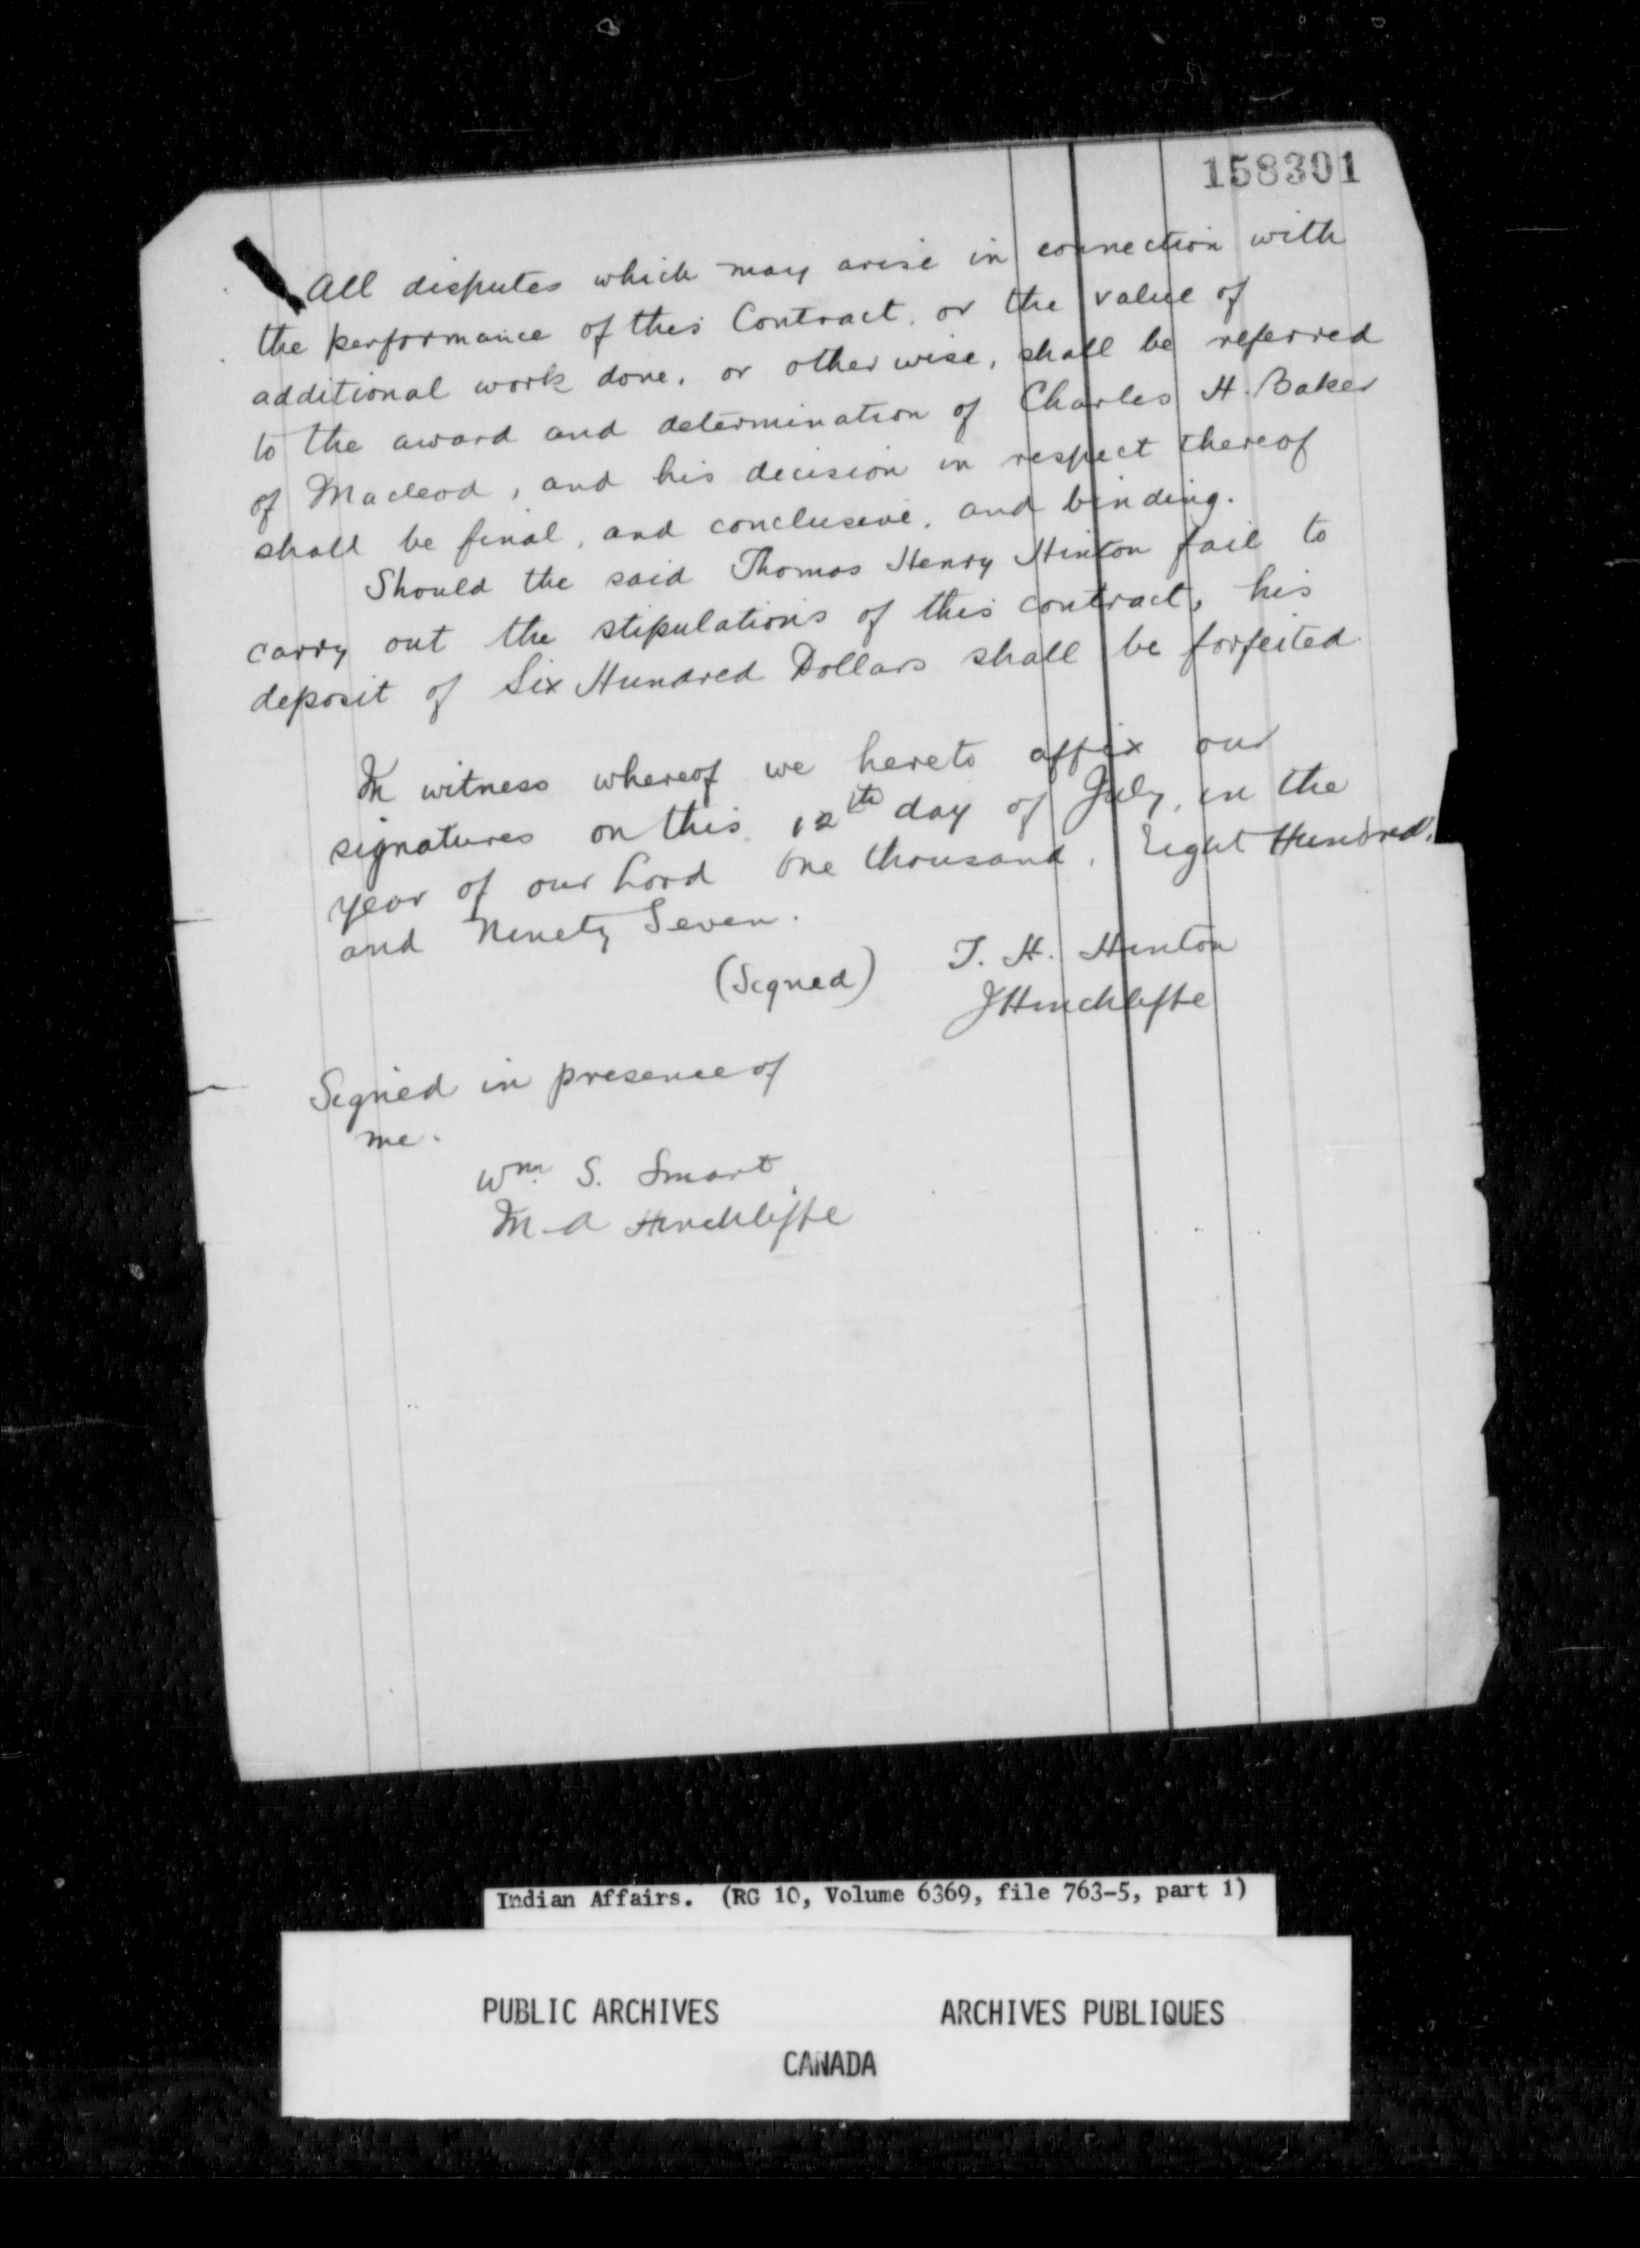 158301
All disputes which may arise in connection with
the performance of this Contract. or the value of
additional work done, or other wise, shall be referred
to the award and determination of Charles H. Baker
of Macleod, and his decision in respect thereof
shall be final, and conclusive, and binding.
Should the said Thomas Henry Hinton fail to
carry out the stipulations of this contract, his
deposit of Six Hundred Dollars shall be forfeited.
In witness whereof we hereto affix our
signatures on this 12th day of July, in the
year of our Lord One thousand, Eight Hundred,
and Ninety Seven.
(Signed) T. H. Hinton
J Hinchliffe
Signed in presence of
me.
Wm. S. Smart
M. A Hinchliffe
Indian Affairs. (RG 10, Volume 6369, file 763-5, part 1)
PUBLIC ARCHIVES ARCHIVES PUBLIQUES
CANADA